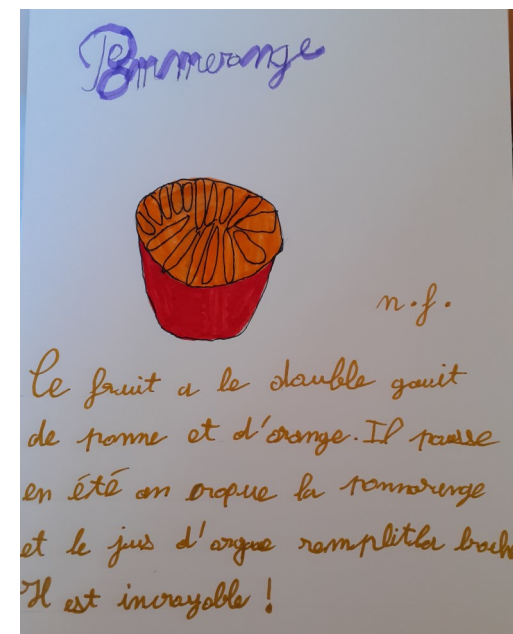 Pommerange
n.f.
Ce fruit a le double gouit
de pomme et d'orange. Il pousse
en été on croque la pommorenge
et le jus d'orgue remplitla bouch
Il est incrayable !